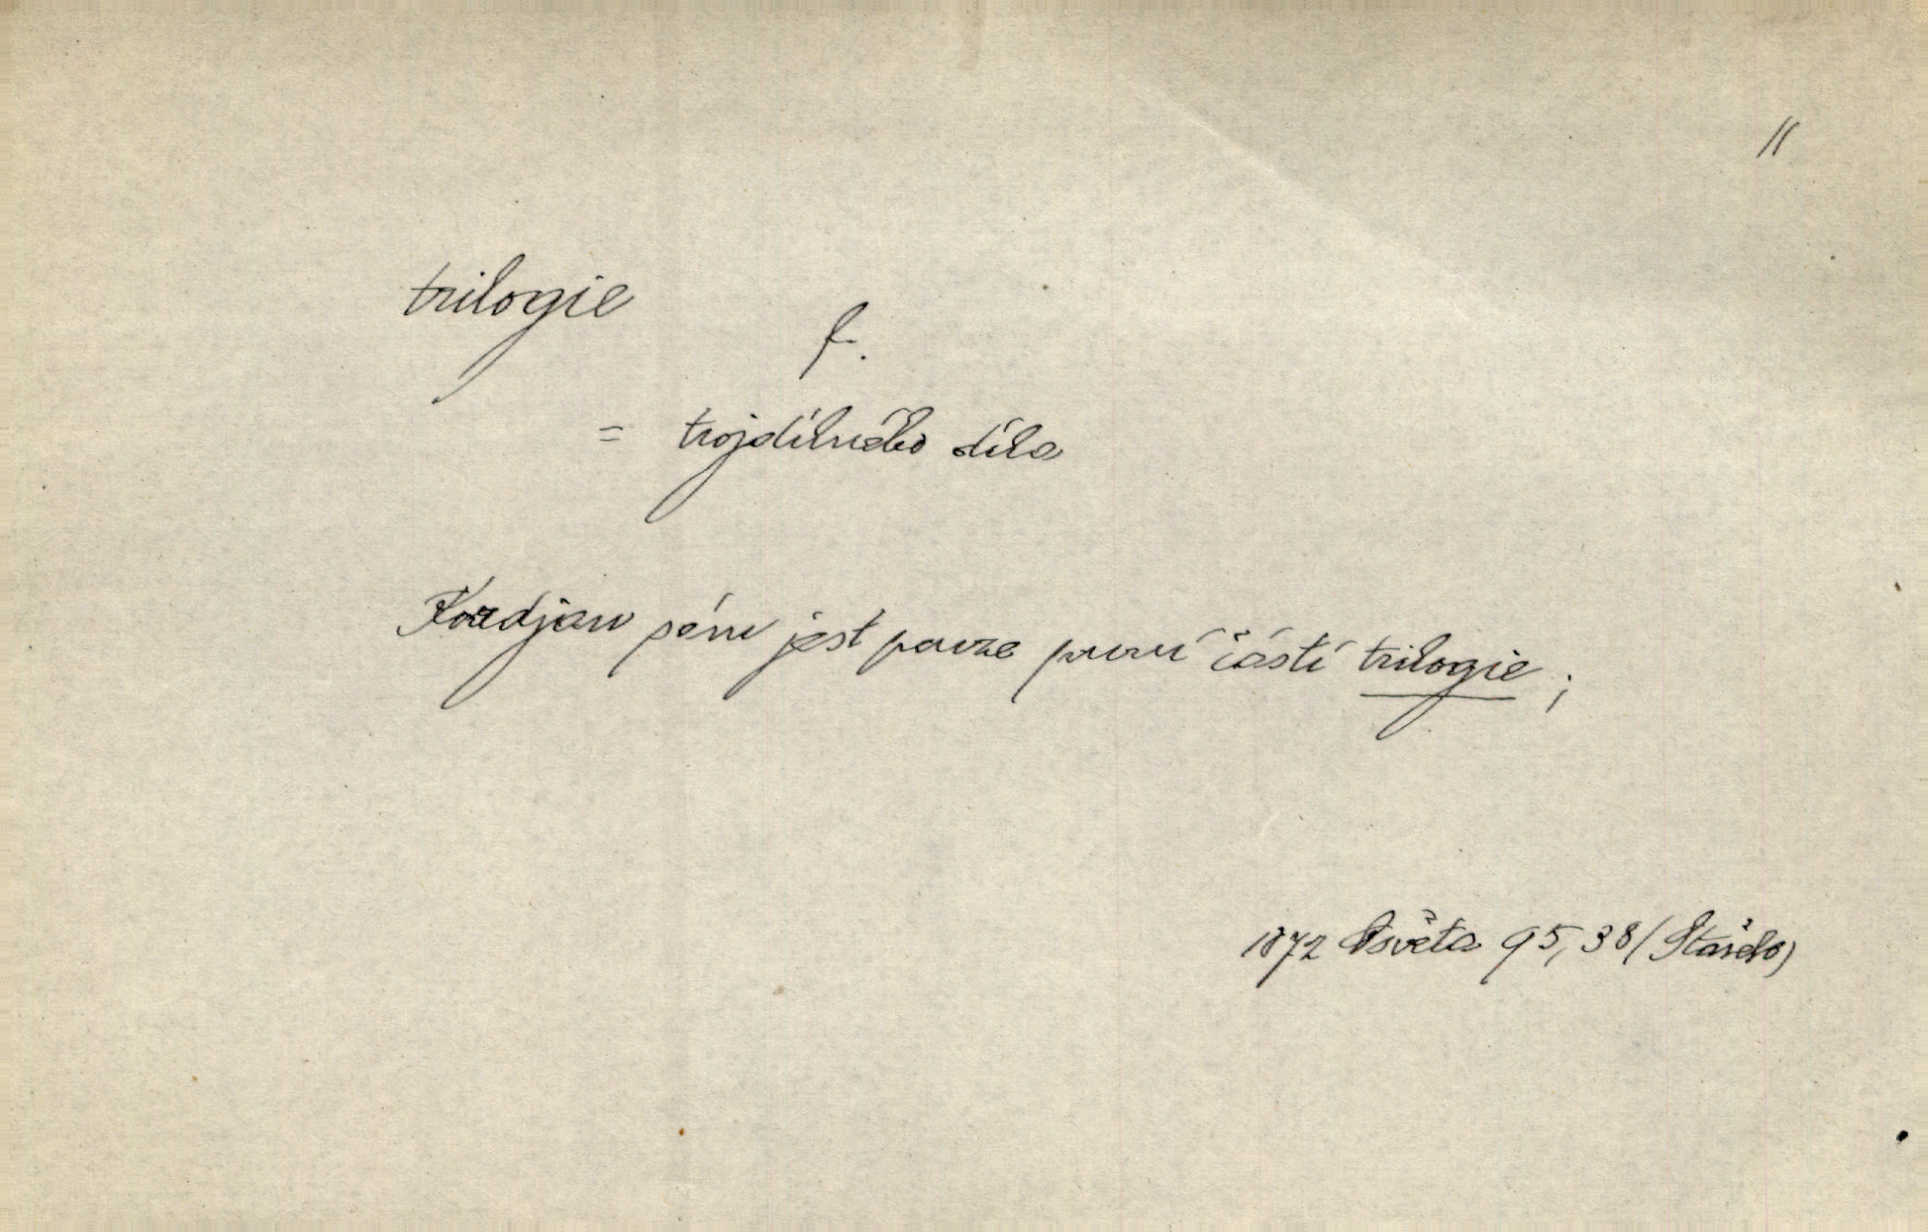 11
trilogie
f.
= trojdílného díla
Kordjan sám jest pouze první částí trilogie;
1872 Osvěta 95, 38 (Stašek)